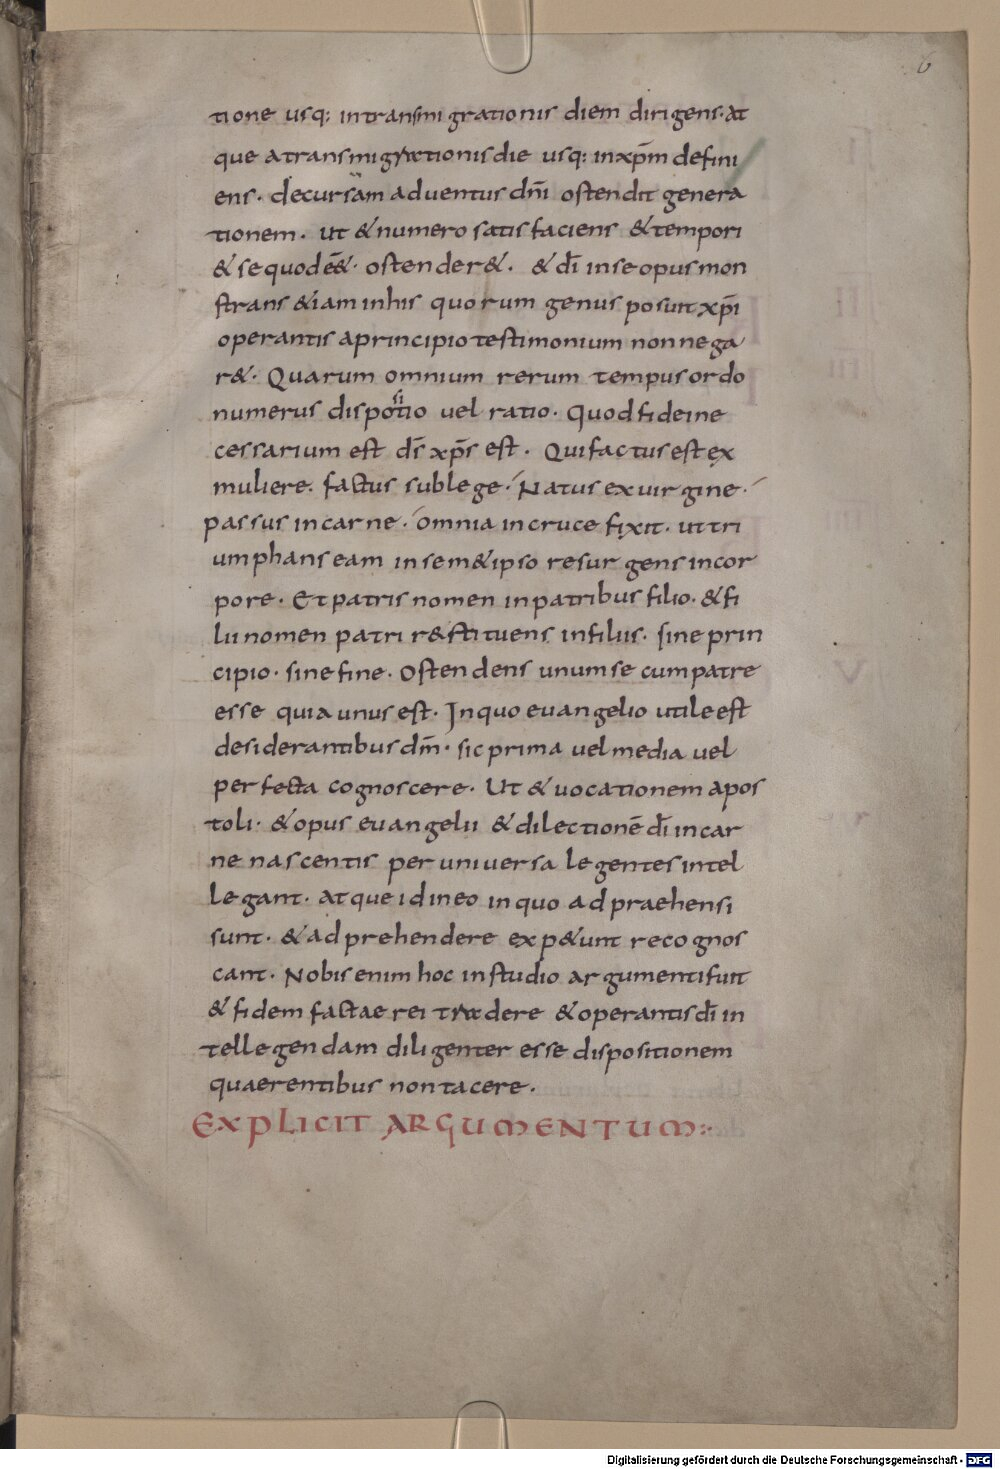 6
tione usq: intransmigrationis diem dirigens · at
que atransmigrationis die usq: inxp̄m defini
ens · decursam aduentus dn̄i ostendit genera
tionem · ut & numero satis faciens & tempori
& se quod eē& · ostender& · & dī in se opus mon
strans & iam inhis quorum genus posuit xp̄i
operantis aprincipio testimonium non nega
r& · Quarum omnium rerum tempus ordo
numerus dispotio uel ratio · Quod fidei ne
cessarium est ds̄ xp̄s est · Qui factus est ex
muliere · factus sub lege · Natus ex uirgine ·
passus in carne · omnia in cruce fixit · ut tri
umphans eam in sem&ipso resurgens in cor
pore · Et patris nomen in patribus filio · & fi
lii nomen patri r&stituens in filiis · sine prin
cipio · sine fine · Ostendens unum se cum patre
esse quia unus est · In quo euangelio utile est
desiderantibus dm̄ · sic prima uel media uel
perfecta cognoscere · Ut & uocationem apos
toli · & opus euangelii & dilectionē dī in car
ne nascentis per uniuersa legentes intel
legant · atque id in eo in quo adpraehensi
sunt · & adprehendere exp&unt recognos
cant · Nobis enim hoc in studio argumenti fuit
& fidem factae rei tradere & operantis dī in
tellegendam diligenter esse dispositionem
quaerentibus non tacere ·
EXPLICIT ARGUMENTUM:·
Digitalisierung gefördert durch die Deutsche Forschungsgemeinschaft - DFG